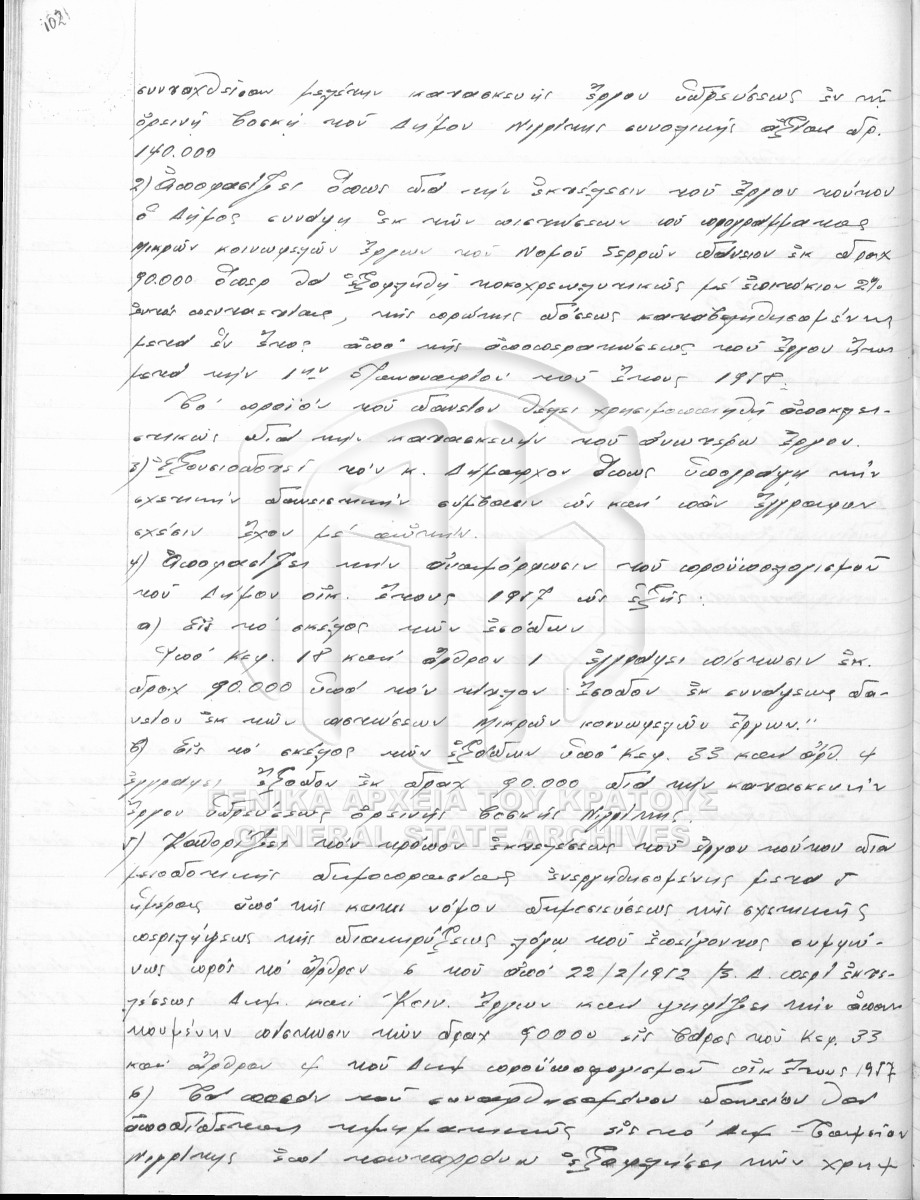 102
συνταχθεῖσαν μελέτην κατασκευῆς ἔργου ὑδρεύσεως ἐν τῇ
ὀρεινῇ βοσκῇ τοῦ Δήμου Νιγρίτης συνολικῆς ἀξίας δρ.
140.000
2) Ἀποφασίζει ὅπως διά τήν ἐκτέλεσιν τοῦ ἔργου τούτου
ὁ Δῆμος συνάψῃ ἐκ τῶν πιστώσεων τοῦ προγράμματος
μικρῶν κοινωφελῶν ἔργων τοῦ Νομοῦ Σερρῶν δάνειον ἐκ δραχ
90.000 ὅπερ θά ἐξοφληθῇ τοκοχρεωλυτικῶς μέ ἐπιτόκιον 2%
ἐντός πενταετίας, τῆς πρώτης δόσεως καταβληθησομένης
μετά ἕν ἔτος ἀπό τῆς ἀποπερατώσεως τοῦ ἔργου ἤτοι
μετά τήν 1ην Ἰανουαρίου τοῦ ἔτους 1958.
Τό προϊόν τοῦ δανείου θέλει χρησιμοποιηθῇ ἀποκλει-
στικῶς διά τήν κατασκευήν τοῦ ἀνωτέρω ἔργου.
3) Ἐξουσιοδοτεῖ τόν κ. Δήμαρχον ὅπως ὑπογράψῃ τήν
σχετικήν δανειστικήν σύμβασιν ὡς καί πᾶν ἔγγραφον
σχέσιν ἔχον μέ αὐτήν.
4) Ἀποφασίζει τήν ἀναμόρφωσιν τοῦ προϋπολογισμοῦ
τοῦ Δήμου οἰκ. ἔτους 1957 ὡς ἑξῆς:
α) Εἰς τό σκέλος τῶν ἐσόδων
Ὑπό Κεφ. 18 καί ἄρθρον 1 ἐγγράφει πίστωσιν ἐκ
δραχ 90.000 ὑπό τόν τίτλον "Ἔσοδον ἐκ συνάψεως δα-
νείου ἐκ τῶν πιστώσεων μικρῶν κοινωφελῶν ἔργων."
β) Εἰς τό σκέλος τῶν ἐξόδων ὑπό Κεφ. 33 καί ἄρθ. 4
ἐγγράφει ἔξοδον ἐκ δραχ 90.000 διά τήν κατασκευήν
ἔργου ὑδρεύσεως ὀρεινῆς βοσκῆς Νιγρίτης.
ΓΕΝΙΚΑ ΑΡΧΕΙΑ ΤΟΥ ΚΡΑΤΟΥΣ
GENERAL STATE ARCHIVES
5) Καθορίζει τόν τρόπον ἐκτελέσεως τοῦ ἔργου τούτου διά
μειοδοτικῆς δημοπρασίας ἐνεργηθησομένης μετά 5
ἡμέρας ἀπό τῆς κατά νόμον δημοσιεύσεως τῆς σχετικῆς
περιλήψεως τῆς διακηρύξεως λόγῳ τοῦ ἐπείγοντος συμφώ-
νως πρός τό ἄρθρον 6 τοῦ ἀπό 22/2/1952 Β.Δ. περί ἐκτε-
λέσεως Δημ. καί Κοιν. ἔργων καί ψηφίζει τήν ἀπαι-
τουμένην πίστωσιν τῶν δραχ 90000 εἰς βάρος τοῦ Κεφ. 33
καί ἄρθρον 4 τοῦ Δημ προϋπολογισμοῦ οἰκ ἔτους 1957
6) Τό ποσόν τοῦ συναφθησομένου δανείου θά
ἀποδίδεται τμηματικῶς εἰς τό Δημ Ταμεῖον
Νιγρίτης ἐπί ἐξοφλήσει τῶν χρημ